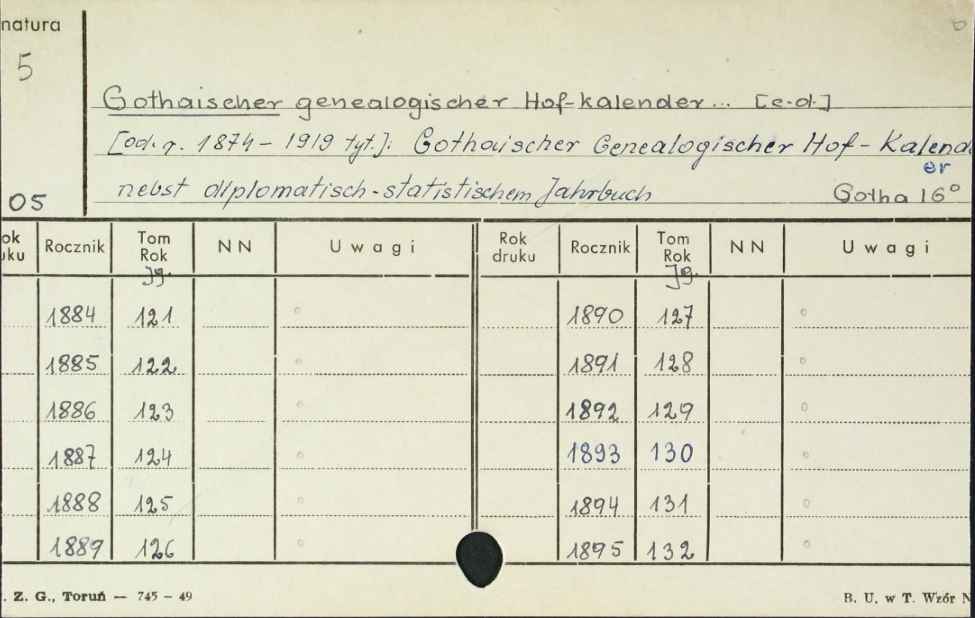 natura
5
Gothaischer genealogischer Hof-kalender... [c.d.]
[od. r. 1874 - 1919 tyt.]: Gothaischer Genealogischer Hof - Kalend
er
nebst diplomatisch-statistischem Jahrbuch Gotha 16°
05
ok uku Rocznik Tom Rok NN Uwagi Rok druku Rocznik Tom Rok NN Uwagi
Jg. Jg.
1884 121 1890 127
1885 122 1891 128
1886 123 1892 129
1887 124 1893 130
1888 125 1894 131
1889 126 1895 132
. Z. G., Toruń — 745 – 49 B. U. w T. Wzór N